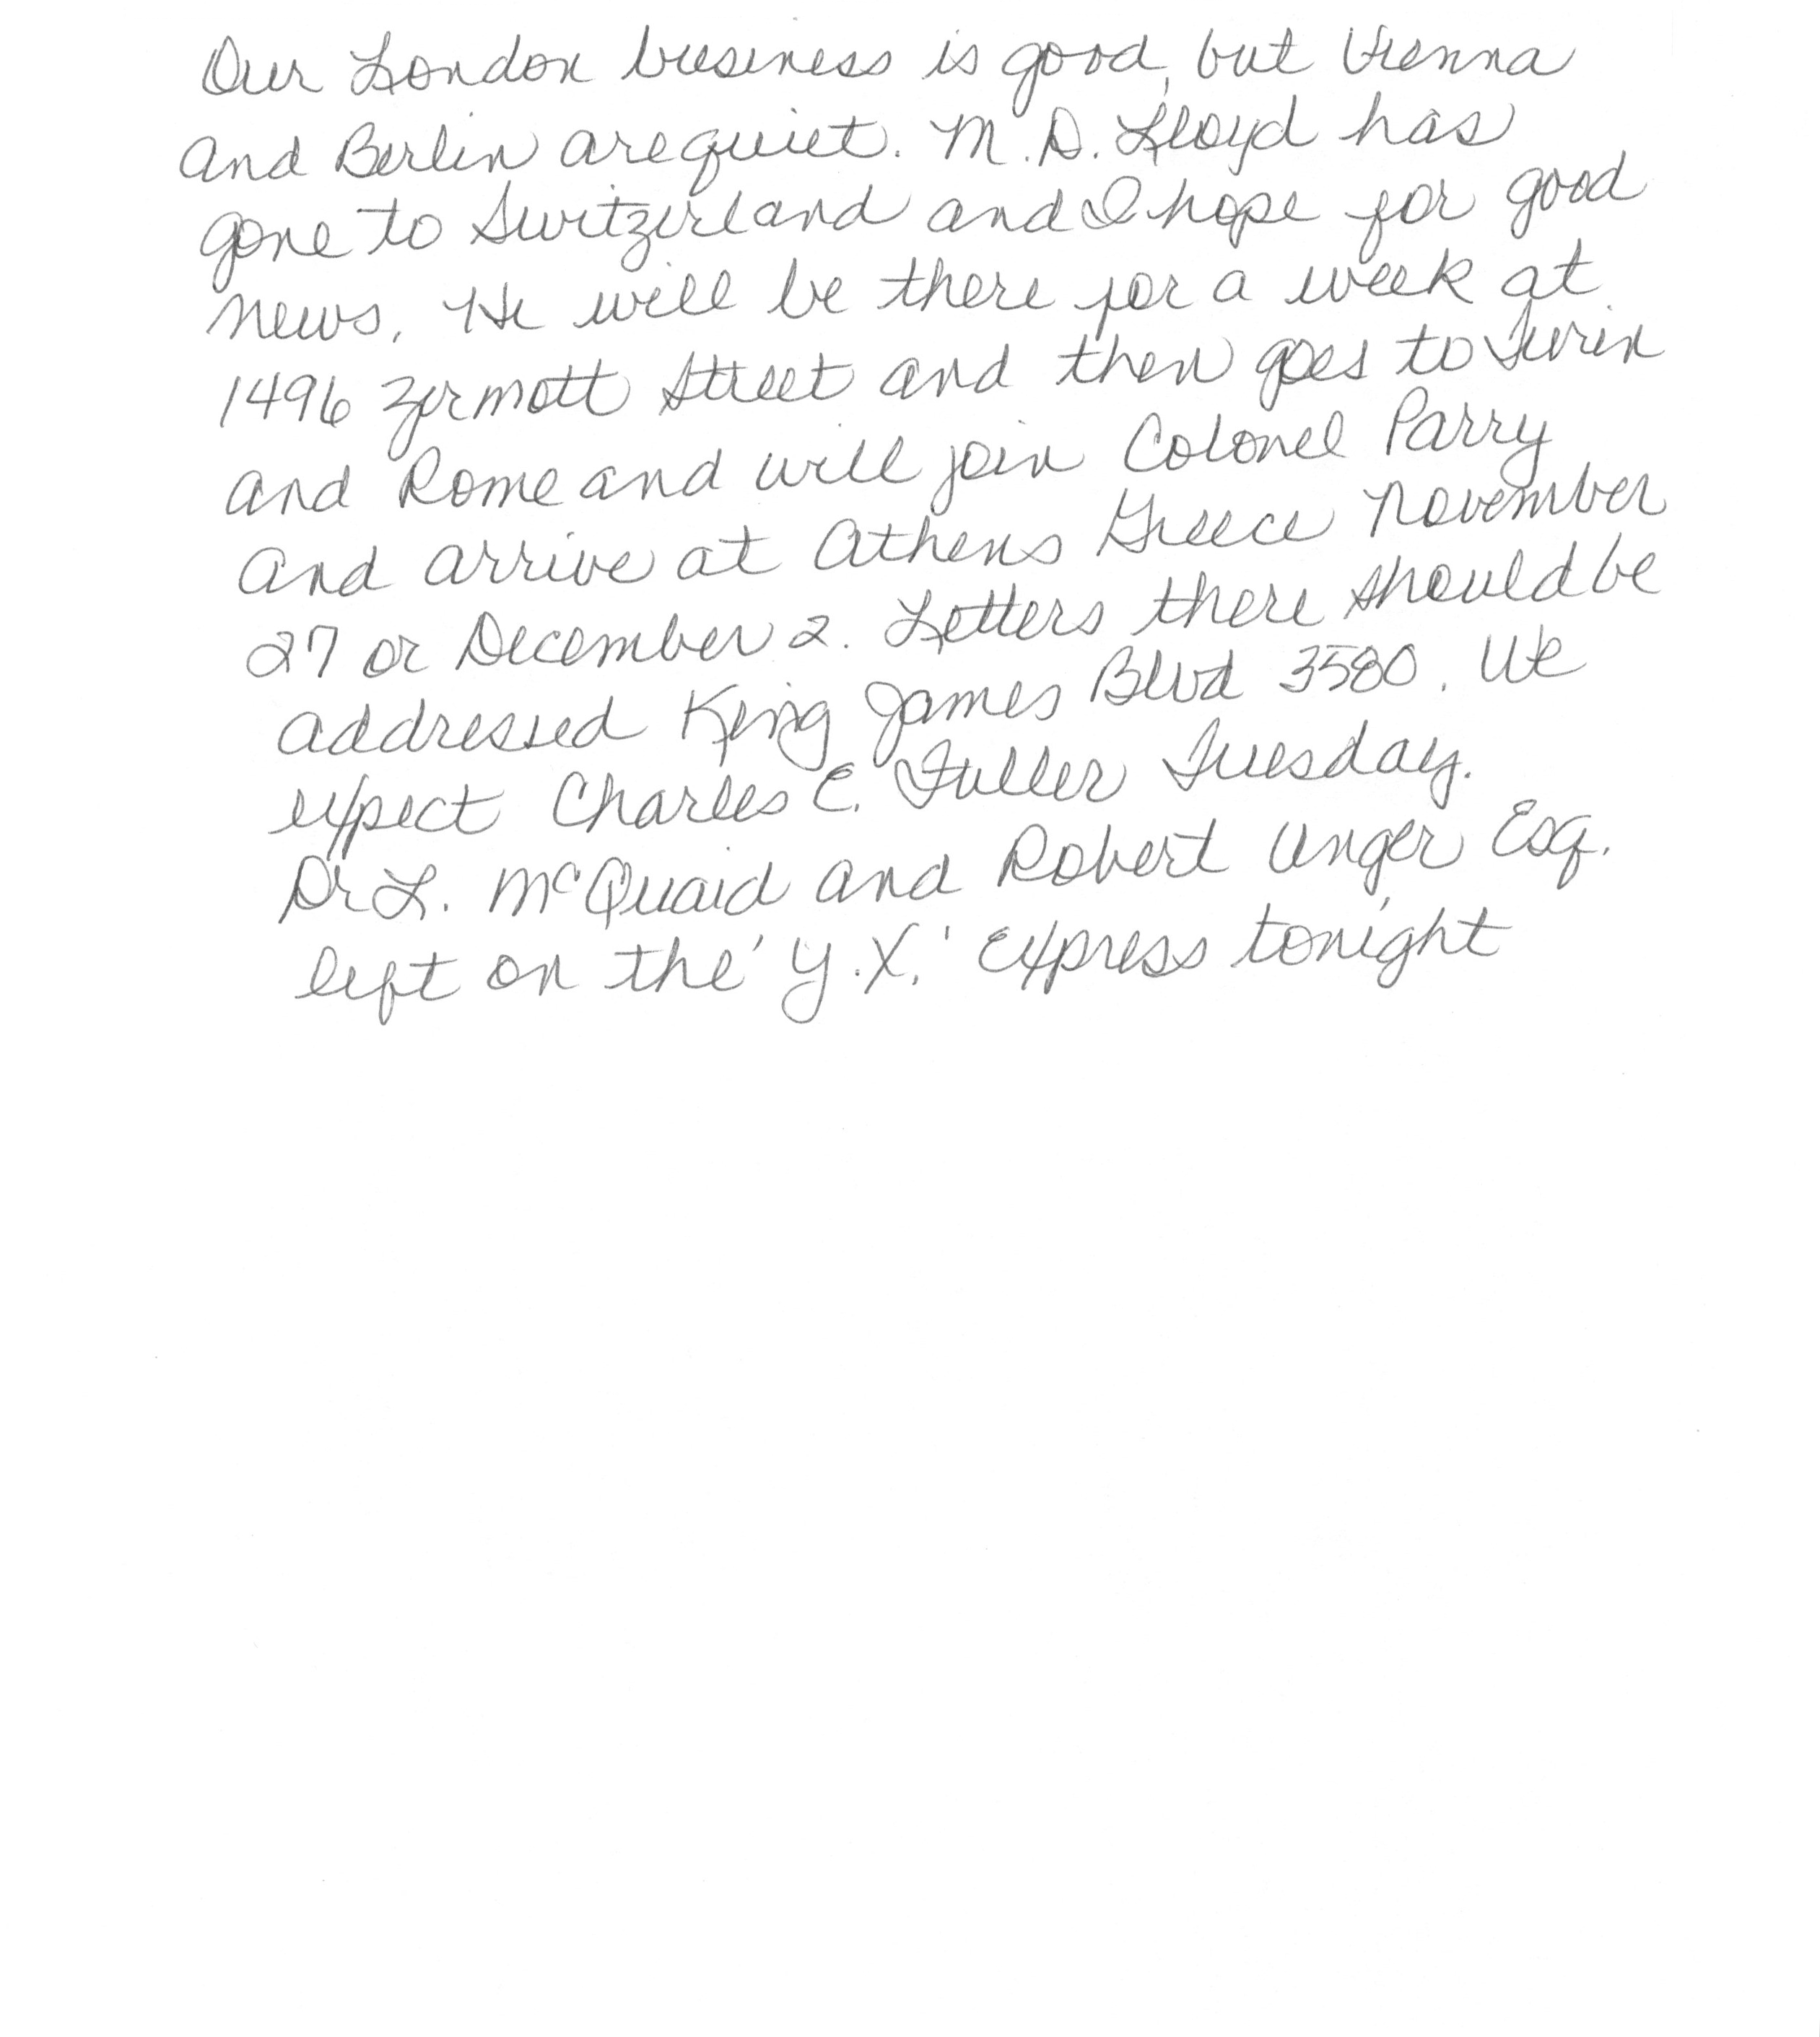 Our London business is good, but Vienna
and Berlin are quiet. M. D. Lloyd has
gone to Switzerland and I hope for good
news. He will be there for a week at
1496 Zermott Street and then goes to Turin
and Rome and will join Colonel Parry
and arrive at Athens Greece November
27 or December 2. Letters there should be
addressed King James Blvd 3580. We
expect Charles E. Fuller Tuesday.
Dr L. McQuaid and Robert Unger, Esq.
left on the 'Y.X.' Express tonight